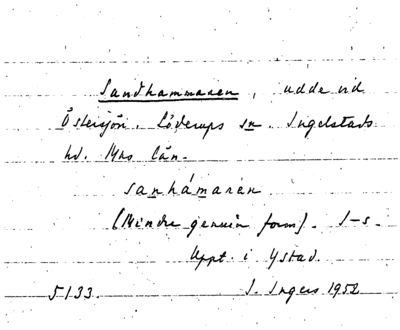 Sandhammaren, udde vid
Östersjön. Löderups sn. Ingelstads
hd. Mhs län.
sanhámaren
(Mindre genuin form). I-s.
Uppt. i Ystad.
5133. I. Ingers 1952